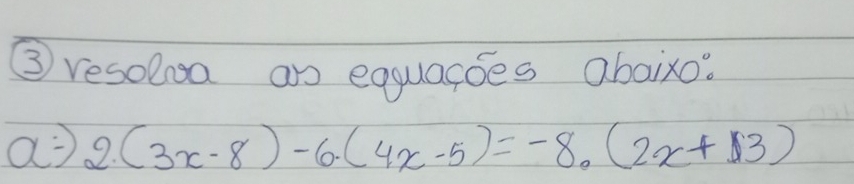 ③ resolva as equações abaixo:
a-) 2.(3x-8)-6.(4x-5)=-8.(2x+13)